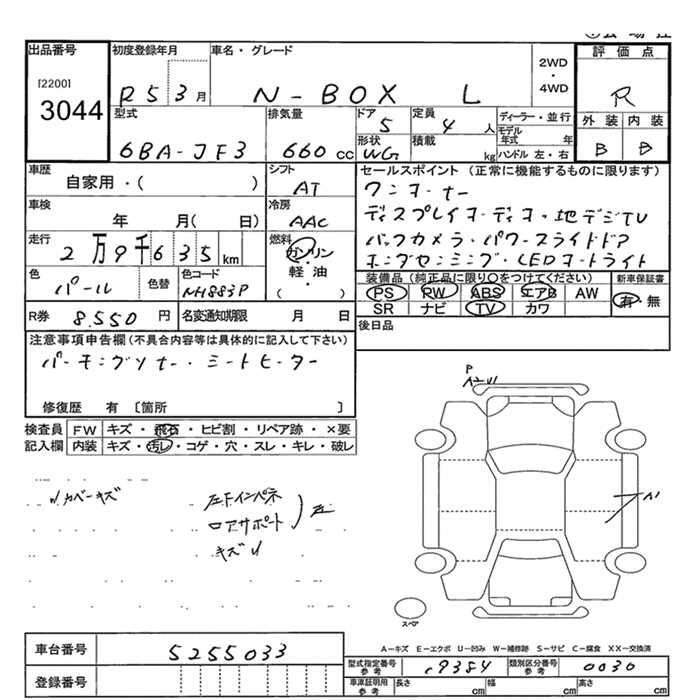 出品番号
[2200]
3044
初度登録年月
R5 3月
車名・グレード
N-BOX L
2WD
・
4WD
評価点
R
外装 内装
B B
型式
6BA-JF3
排気量
660 cc
ドア
5
定員
4 人
形状
WG
積載
kg
ディーラー・並行
モデル年式 年
ハンドル 左・右
車歴
自家用・( )
シフト
AT
車検
年 月( 日)
冷房
AAC
走行
2万9千635km
燃料
ガソリン
・
軽・油
( )
色
パール
色替
色コード
NH883P
R券 8.550 円
名変通知期限 月 日
セールスポイント (正常に機能するものに限ります)
ワンオーナー
ディスプレイオーディオ・地デジTV
バックカメラ・パワースライドドア
ホンダセンシング・LEDオートライト
装備品 (純正品に限り○をつけてください)
PS RW ABS エアB AW
SR ナビ TV カワ
新車保証書
有・無
後日品
注意事項申告欄(不具合内容等は具体的に記入して下さい)
シートヒーター
修復歴 有 〔箇所 〕
検査員記入欄
FW キズ・飛石・ヒビ割・リペア跡・×要
内装 キズ・汚レ・コゲ・穴・スレ・キレ・破レ
カバーキズ
左Fインパネ
ロアサポート
キズU
左
P
A1
スペア
車台番号 5255033
登録番号
A-キズ E-エクボ U-凹み W-補修跡 S-サビ C-腐食 XX-交換済
型式指定番号参考 19384
類別区分番号参考 0030
車庫証明用参考 長さ cm 幅 cm 高さ cm